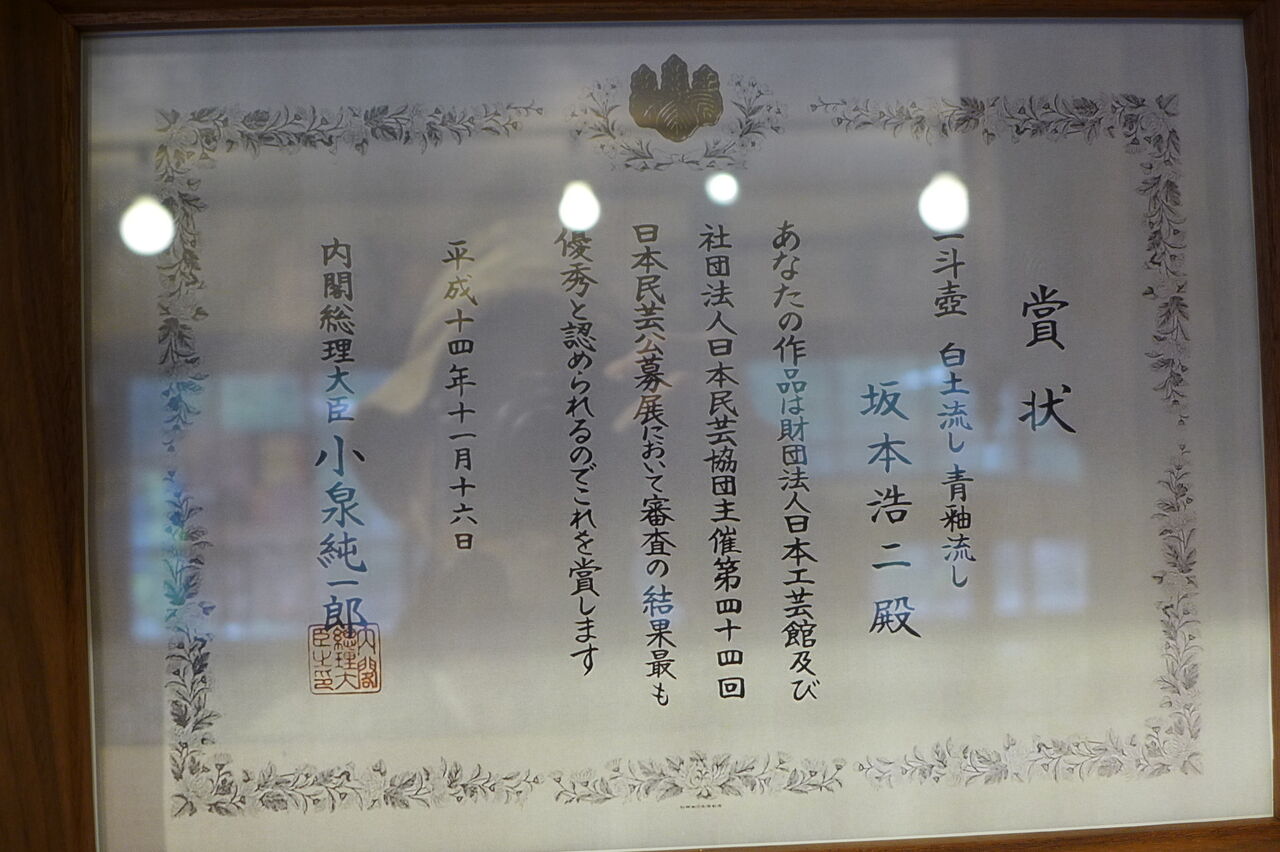 賞状
一斗壺 白土流し 青釉流し
坂本浩二殿
あなたの作品は財団法人日本工芸館及び
社団法人日本民芸協団主催第四十四回
日本民芸公募展において審査の結果最も
優秀と認められるのでこれを賞します
平成十四年十一月十六日
内閣総理大臣 小泉純一郎
内閣總理大臣之印